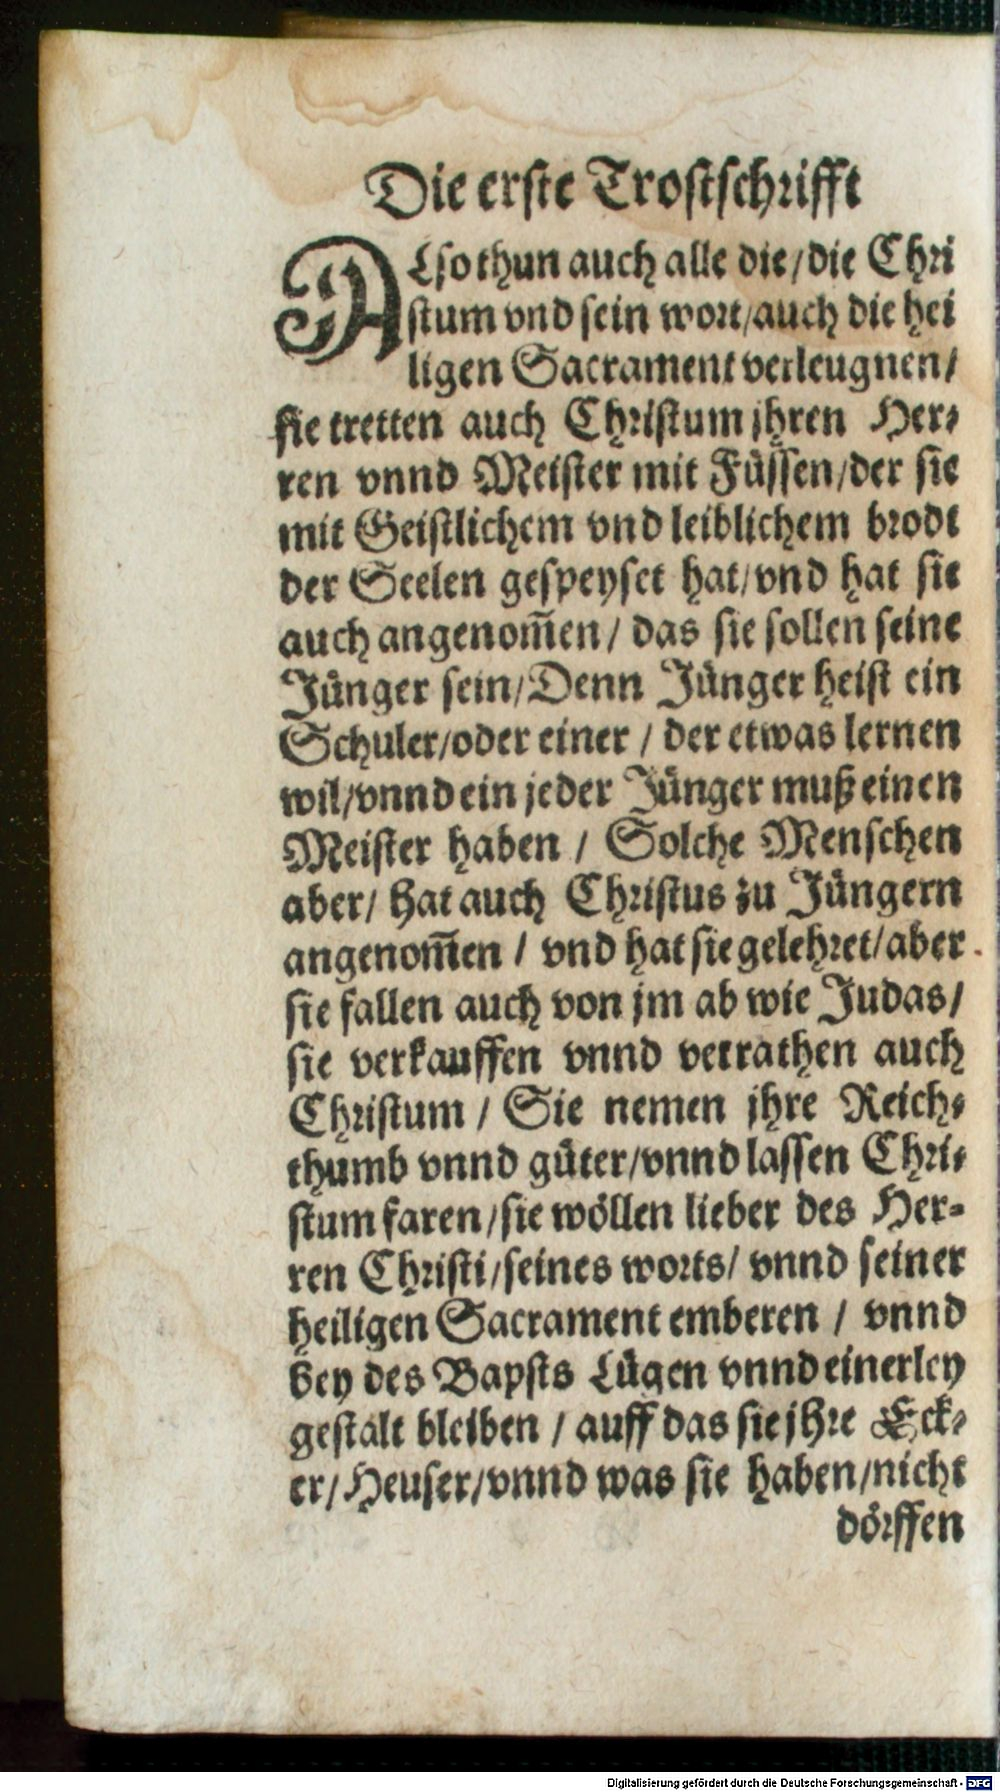 Die erste Trostschrifft
ALso thun auch alle die/die Chri
stum vnd sein wort/auch die hei
ligen Sacrament verleugnen/
sie tretten auch Christum jhren Her-
ren vnnd Meister mit Füssen/der sie
mit Geistlichem vnd leiblichem brodt
der Seelen gespeyset hat/vnd hat sie
auch angenom̃en/ das sie sollen seine
Jünger sein/Denn Jünger heist ein
Schuler/oder einer / der etwas lernen
wil/vnnd ein jeder Jünger muß einen
Meister haben / Solche Menschen
aber/ hat auch Christus zu Jüngern
angenom̃en / vnd hat sie gelehret/aber
sie fallen auch von jm ab wie Judas/
sie verkauffen vnnd verrathen auch
Christum / Sie nemen jhre Reich-
thumb vnnd güter/vnnd lassen Chri-
stum faren/sie wöllen lieber des Her-
ren Christi/seines worts/ vnnd seiner
heiligen Sacrament emberen / vnnd
bey des Bapsts Lügen vnnd einerley
gestalt bleiben / auff das sie jhre Eck-
er/Heuser/vnnd was sie haben/nicht
dörffen
Digitalisierung gefördert durch die Deutsche Forschungsgemeinschaft - DFG